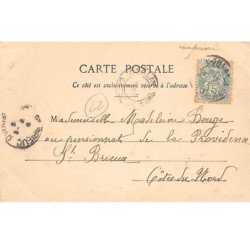 imprimé
CARTE POSTALE
Ce côté est exclusivement réservé à l'adresse
22
Mademoiselle Madeleine Bouge
au pensionnat de la Providence
St Brieuc
Côtes du Nord